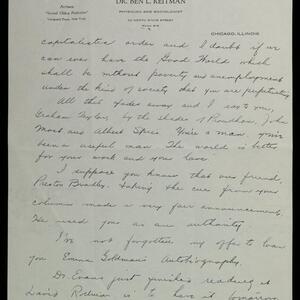 Author:
"Second Oldest Profession"
Vanguard Press, New York
DR. BEN L. REITMAN
PHYSICIAN AND SOCIOLOGIST
32 NORTH STATE STREET
CHICAGO, ILLINOIS
capitalistic order and I doubt if we
can ever have the Good World which
shall be without poverty and unemployment
under the kind of society that you are perpetuating
All that fades away and I say to you,
Graham Taylor, by the shades of John
Most and Albert Spies. You're a man. you've
been a useful man. The world is better
for your work and your love.
I suppose you know that our friend,
Preston Bradley, taking the cue from your
columns made a very fair announcement.
He used you as an authority
I've not forgotten my offer to loan
you Emma Goldman's Autobiography.
Dr. Evans just finished reading it
is to have it tomorrow